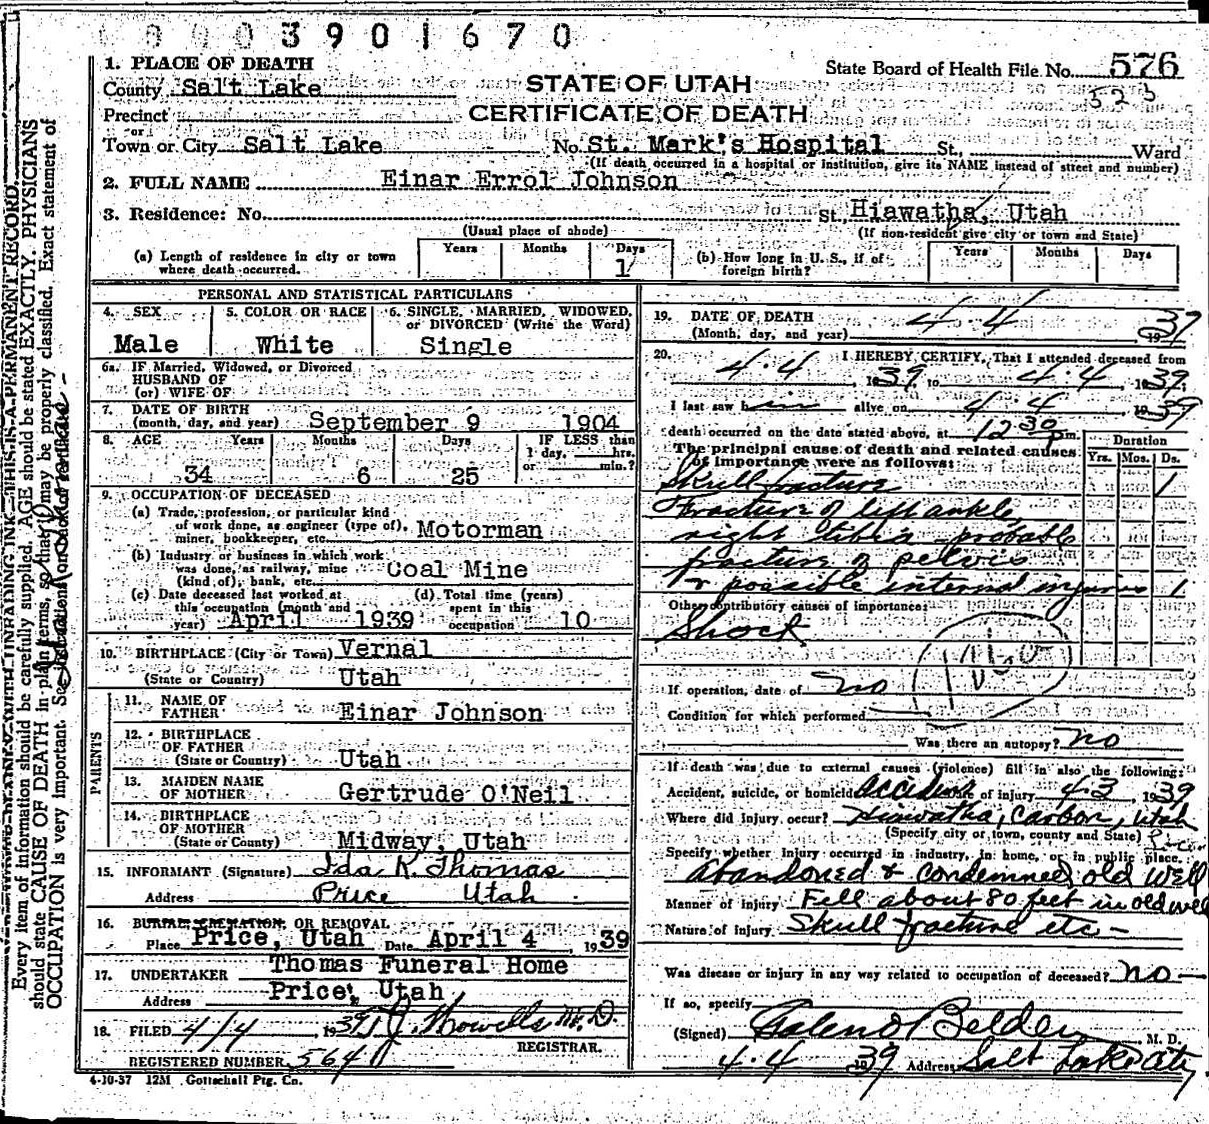 0003901670
State Board of Health File No. 576
523
1. PLACE OF DEATH
County Salt Lake
STATE OF UTAH
CERTIFICATE OF DEATH
Precinct
or
Town or City Salt Lake No. St. Mark's Hospital St., Ward
(If death occurred in a hospital or institution, give its NAME instead of street and number)
2. FULL NAME Einar Errol Johnson
3. Residence: No. St., Hiawatha, Utah
(Usual place of abode) (If non-resident give city or town and State)
(a) Length of residence in city or town where death occurred. Years Months Days 1
(b) How long in U. S., if of foreign birth? Years Months Days
PERSONAL AND STATISTICAL PARTICULARS
4. SEX Male
5. COLOR OR RACE White
6. SINGLE, MARRIED, WIDOWED, or DIVORCED (Write the Word) Single
6a. IF Married, Widowed, or Divorced
HUSBAND OF
(or) WIFE OF
7. DATE OF BIRTH
(month, day, and year) September 9 1904
8. AGE Years Months Days IF LESS than
1 day, hrs.
or min.?
34 6 25
9. OCCUPATION OF DECEASED
(a) Trade, profession, or particular kind
of work done, as engineer (type of),
miner, bookkeeper, etc. Motorman
(b) Industry or business in which work
was done, as railway, mine
(kind of), bank, etc. Coal Mine
(c) Date deceased last worked at
this occupation (month and
year) April 1939
(d) Total time (years)
spent in this
occupation 10
10. BIRTHPLACE (City or Town) Vernal
(State or Country) Utah
PARENTS
11. NAME OF
FATHER Einar Johnson
12. BIRTHPLACE
OF FATHER
(State or Country) Utah
13. MAIDEN NAME
OF MOTHER Gertrude O'Neil
14. BIRTHPLACE
OF MOTHER
(State or County) Midway, Utah
15. INFORMANT (Signature) Ida K. Thomas
Address Price Utah
16. BURIAL, CREMATION, OR REMOVAL
Place Price, Utah Date April 4, 1939
17. UNDERTAKER Thomas Funeral Home
Address Price, Utah
18. FILED 4/4 1939 T J. Howells M. D.
REGISTRAR.
REGISTERED NUMBER 564
4-10-37 12M Gottschall Ptg. Co.
19. DATE OF DEATH
(Month, day, and year) 4-4 1939
20. I HEREBY CERTIFY, That I attended deceased from
4-4, 1939, to 4-4, 1939,
I last saw him alive on 4-4 1939
death occurred on the date stated above, at 12 30 pm.
The principal cause of death and related causes
of importance were as follows:
Duration
Yrs. Mos. Ds.
Skull fracture 1
Fracture of left ankle,
right tibia - probable
fracture of pelvis
+ possible internal injuries 1
Other contributory causes of importance:
Shock
If operation, date of no
Condition for which performed
Was there an autopsy? no
If death was due to external causes (violence) fill in also the following:
Accident, suicide, or homicide accident Date of injury 4-3 1939
Where did injury occur? Hiawatha, Carbon, Utah
(Specify city or town, county and State)
Specify whether injury occurred in industry, in home, or in public place.
Abandoned & condemned old well
Manner of injury Fell about 80 feet in old well
Nature of injury Skull fracture etc -
Was disease or injury in any way related to occupation of deceased? no -
If so, specify
(Signed) Galen O Belden M. D.
4-4 1939 Address Salt Lake City
Every item of information should be carefully supplied. AGE should be stated EXACTLY. PHYSICIANS
should state CAUSE OF DEATH in plain terms, so that it may be properly classified. Exact statement of
OCCUPATION is very important.